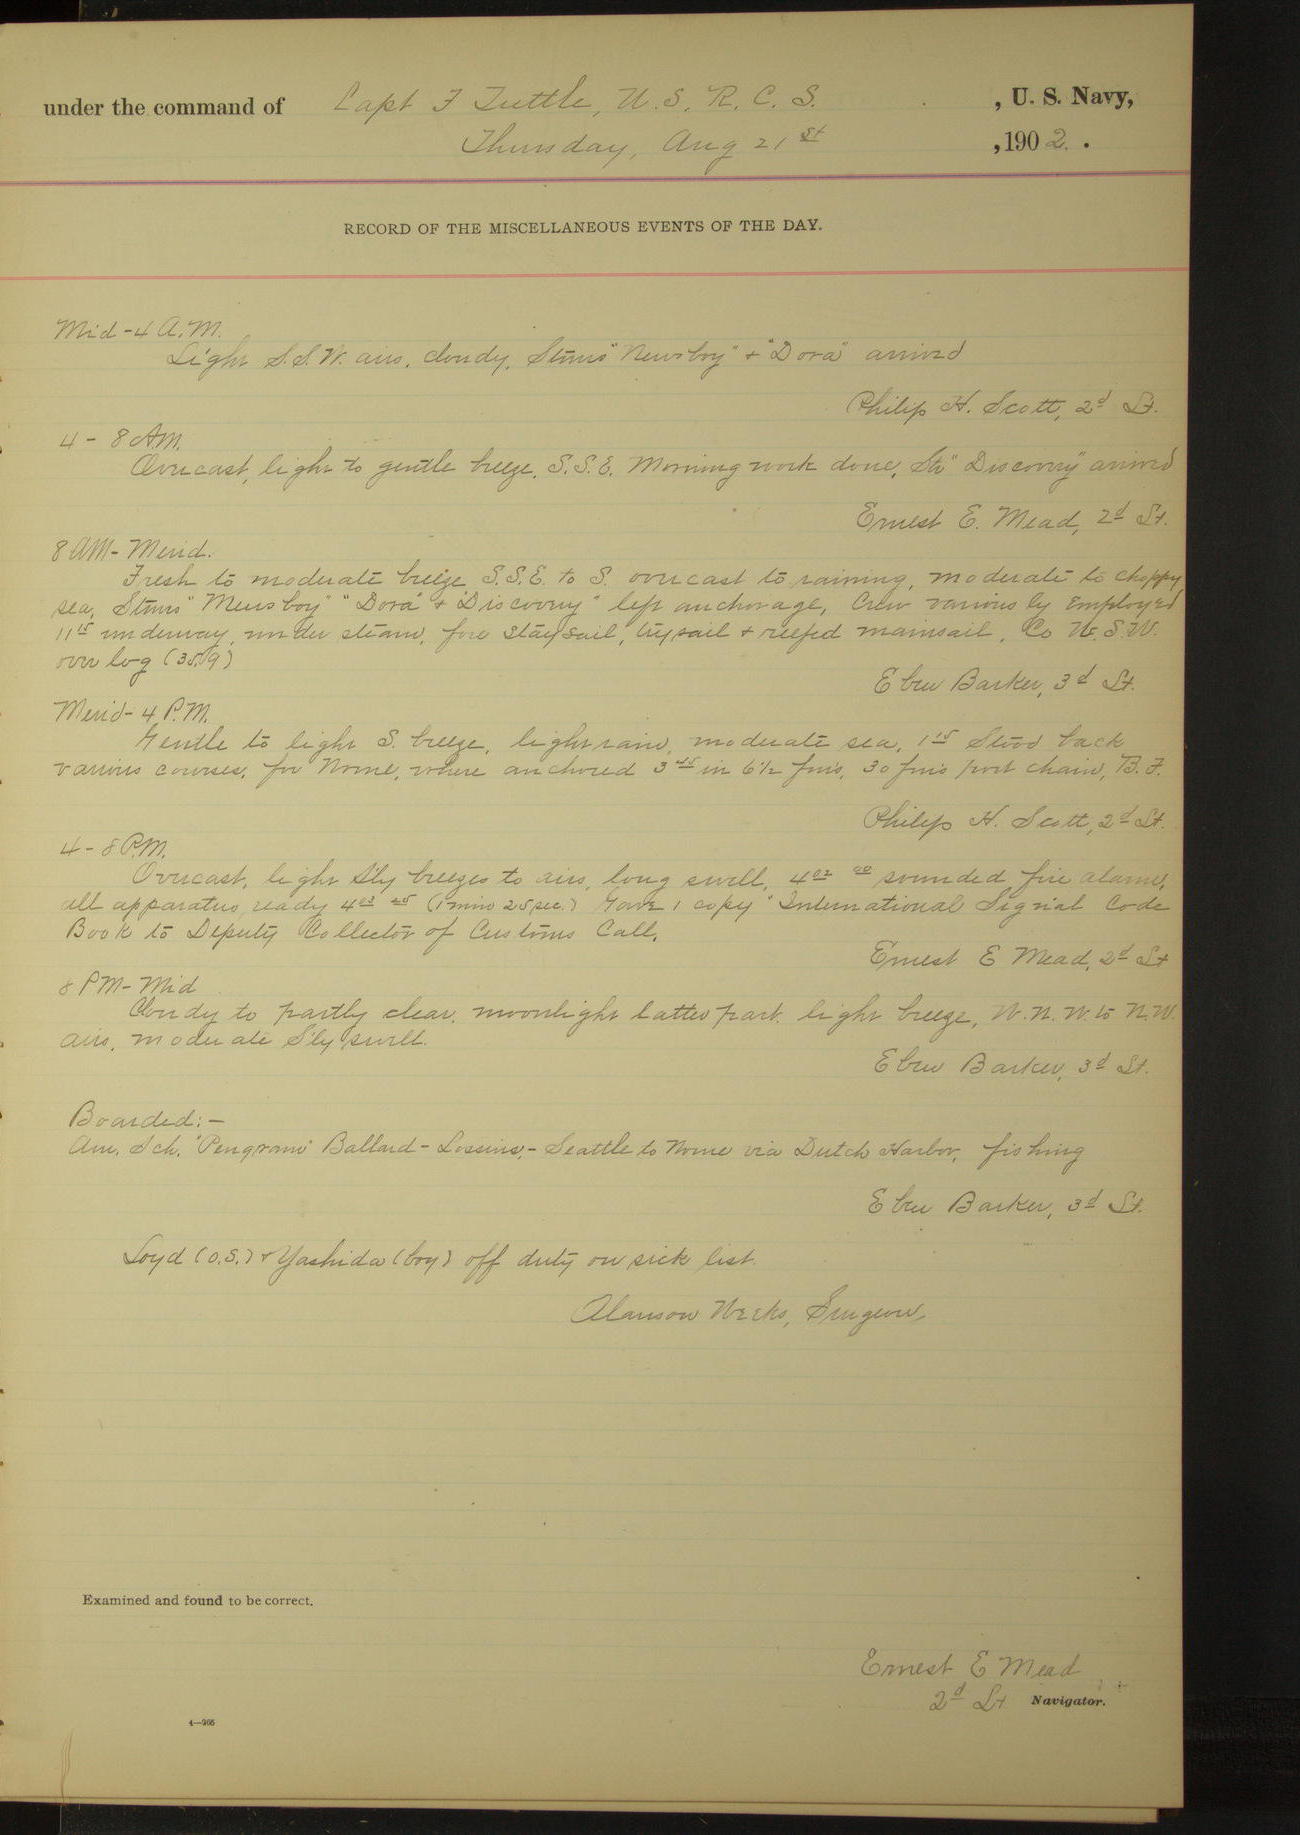 under the command of Capt F Tuttle, U. S. R. C. S. , U. S. Navy,
Thursday, Aug 21st ,1902.
RECORD OF THE MISCELLANEOUS EVENTS OF THE DAY.
Mid-4 A.M.
Light S.S.W. airs, cloudy, Stmrs "Newsboy" + "Dora" arrived
Philip H. Scott, 2d Lt.
4 - 8 A.M.
Overcast, light to gentle breeze, S.S.E. Morning work done, Str "Discovery" arrived
Ernest E. Mead, 2d Lt.
8 AM - Merid.
Fresh to moderate breeze S.S.E. to S. overcast to raining, moderate to choppy
sea, Stmrs "Newsboy" "Dora" + "Discovery" left anchorage, Crew variously Employed
11 15 underway, under steam, fore staysail, trysail + reefed mainsail, Co W.S.W.
over log (35.9)
Eben Barker, 3d Lt.
Merid - 4 P.M.
Gentle to light S. breeze, light rain, moderate sea, 1 15 Stood back
various courses, for Nome, where anchored 3 45 in 6 1/2 fms, 30 fms port chain, B. F.
Philip H. Scott, 2d Lt.
4 - 8 P.M.
Overcast, light S'ly breezes to airs, long swell, 4 02 00 sounded fire alarm,
all apparatus ready 4 03 25 (1 min 25 sec.) Gave 1 copy "International Signal Code
Book to Deputy Collector of Customs Call.
Ernest E Mead, 2d Lt
8 PM - Mid
Cloudy to partly clear, moonlight latter part, light breeze, W.N.W. to N.W.
airs, moderate S'ly swell.
Eben Barker, 3d Lt.
Boarded:-
Am. Sch. Ballard - - Seattle to Nome via Dutch Harbor, fishing
Eben Barker, 3d Lt.
Loyd (O.S.) + Yashida (boy) off duty on sick list.
Alanson Weeks, Surgeon,
Examined and found to be correct.
Ernest E Mead
2d Lt Navigator.
4—905